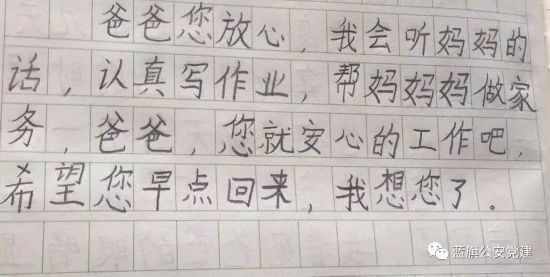 爸爸您放心，我会听妈妈的
话，认真写作业，帮妈妈妈做家
务，爸爸，您就安心的工作吧，
希望您早点回来，我想您了。
蓝旗公安党建